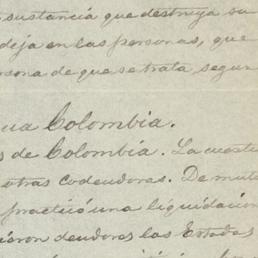 sustancia que destruya su
deja en las personas, que
persona de que se trata segun
Colombia.
s de Colombia. La cuesti
otras codeudores. De mutu
practicó una liquidacion
deudores los Estados